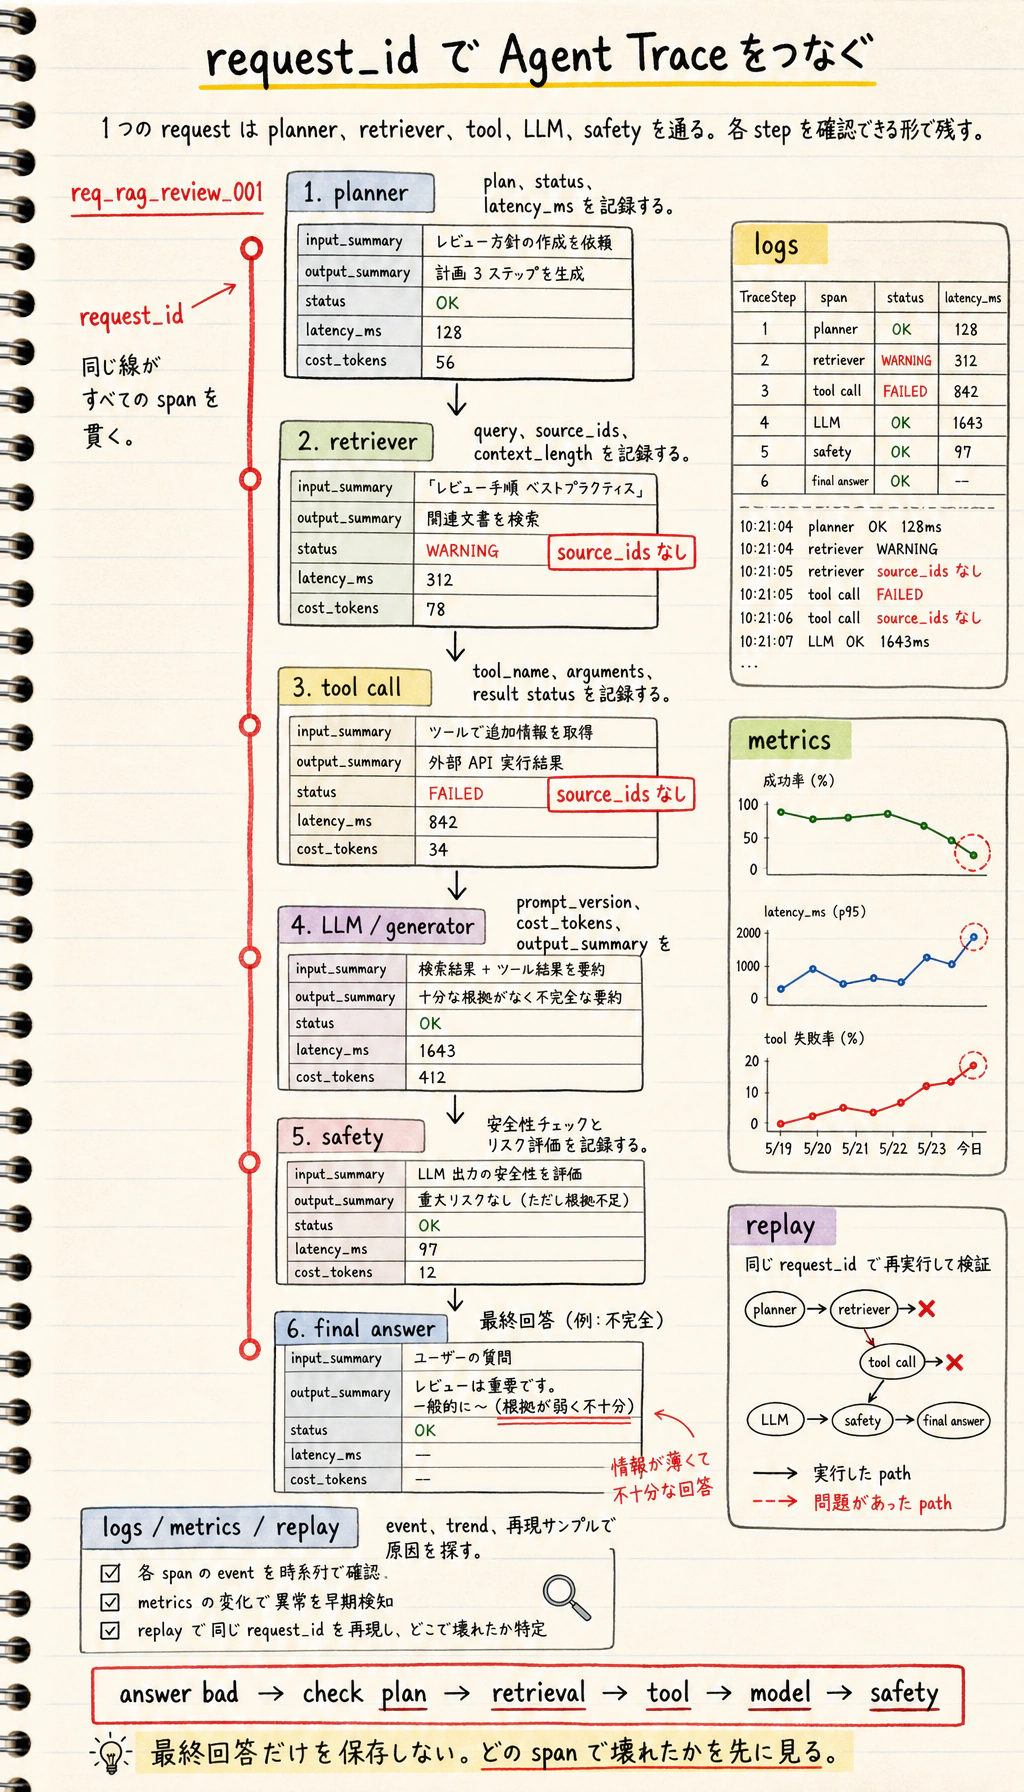 request_id で Agent Trace をつなぐ
1つの request は planner、retriever、tool、LLM、safety を通る。各 step を確認できる形で残す。
req_rag_review_001
request_id
同じ線が
すべての span を
貫く。
1. planner
plan、status、
latency_ms を記録する。
input_summary レビュー方針の作成を依頼
output_summary 計画 3 ステップを生成
status OK
latency_ms 128
cost_tokens 56
2. retriever
query、source_ids、
context_length を記録する。
input_summary 「レビュー手順 ベストプラクティス」
output_summary 関連文書を検索
status WARNING source_ids なし
latency_ms 312
cost_tokens 78
3. tool call
tool_name、arguments、
result status を記録する。
input_summary ツールで追加情報を取得
output_summary 外部 API 実行結果
status FAILED source_ids なし
latency_ms 842
cost_tokens 34
4. LLM / generator
prompt_version、
cost_tokens、
output_summary を
input_summary 検索結果 + ツール結果を要約
output_summary 十分な根拠がなく不完全な要約
status OK
latency_ms 1643
cost_tokens 412
5. safety
安全性チェックと
リスク評価を記録する。
input_summary LLM 出力の安全性を評価
output_summary 重大リスクなし（ただし根拠不足）
status OK
latency_ms 97
cost_tokens 12
6. final answer
最終回答（例：不完全）
input_summary ユーザーの質問
output_summary レビューは重要です。
一般的に〜（根拠が弱く不十分）
status OK
latency_ms --
cost_tokens --
情報が薄くて
不十分な回答
logs
TraceStep span status latency_ms
1 planner OK 128
2 retriever WARNING 312
3 tool call FAILED 842
4 LLM OK 1643
5 safety OK 97
6 final answer OK --
10:21:04 planner OK 128ms
10:21:04 retriever WARNING
10:21:05 retriever source_ids なし
10:21:05 tool call FAILED
10:21:06 tool call source_ids なし
10:21:07 LLM OK 1643ms
...
metrics
成功率 (%)
100
50
0
latency_ms (p95)
2000
1000
0
tool 失敗率 (%)
20
10
0
5/19 5/20 5/21 5/22 5/23 今日
replay
同じ request_id で再実行して検証
planner → retriever → ✕
tool call → ✕
LLM → safety → final answer
→ 実行した path
→ 問題があった path
logs / metrics / replay
event、trend、再現サンプルで
原因を探す。
☑ 各 span の event を時系列で確認.
☑ metrics の変化で異常を早期検知
☑ replay で同じ request_id を再現し、どこで壊れたか特定
answer bad → check plan → retrieval → tool → model → safety
最終回答だけを保存しない。どの span で壊れたかを先に見る。